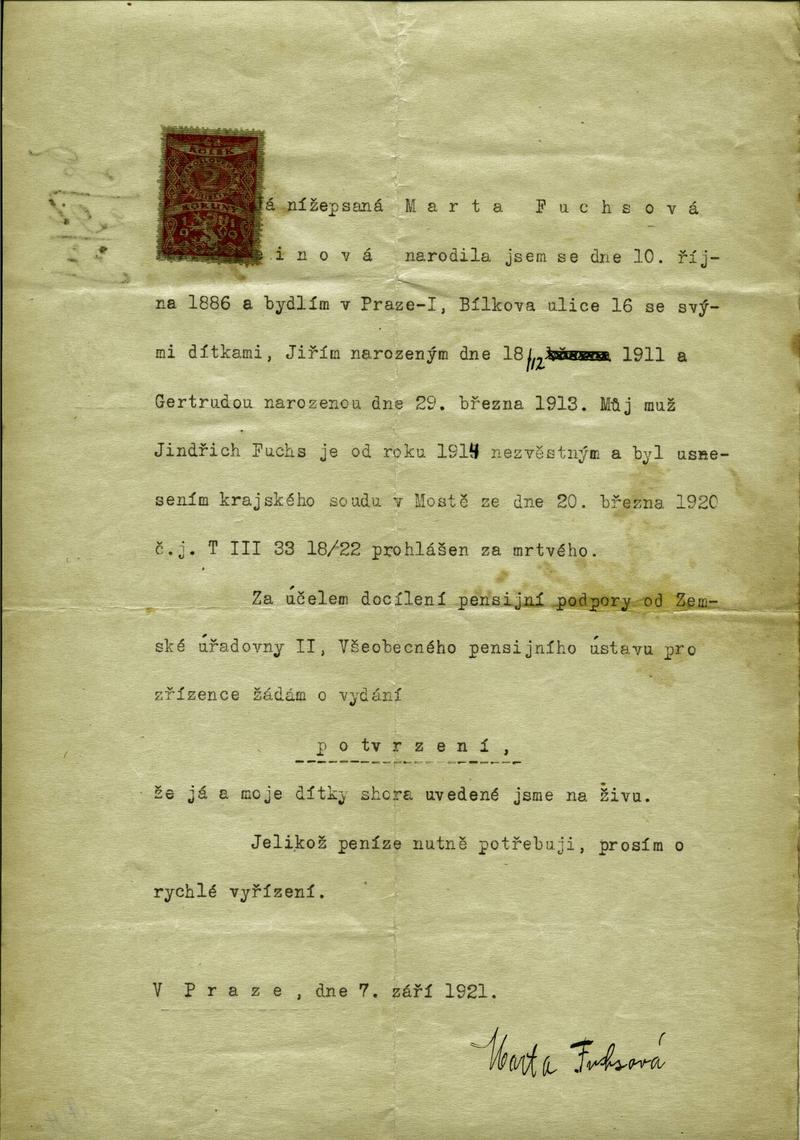 KOLEK
2
KORUNY
1919
á nížepsaná M a r t a F u c h s o v á
i n o v á narodila jsem se dne 10. říj-
na 1886 a bydlím v Praze-I, Bílkova ulice 16 se svý-
mi dítkami, Jiřím narozeným dne 18/12 1911 a
Gertrudou narozenou dne 29. března 1913. Můj muž
Jindřich Fuchs je od roku 1914 nezvěstným a byl usne-
sením krajského soudu v Mostě ze dne 20. března 1920
č.j. T III 33 18/22 prohlášen za mrtvého.
Za účelem docílení pensijní podpory od Zem-
ské úřadovny II, Všeobecného pensijního ústavu pro
zřízence žádám o vydání
p o tv r z e n í ,
že já a moje dítky shora uvedené jsme na živu.
Jelikož peníze nutně potřebuji, prosím o
rychlé vyřízení.
V P r a z e , dne 7. září 1921.
Marta Fuchsová